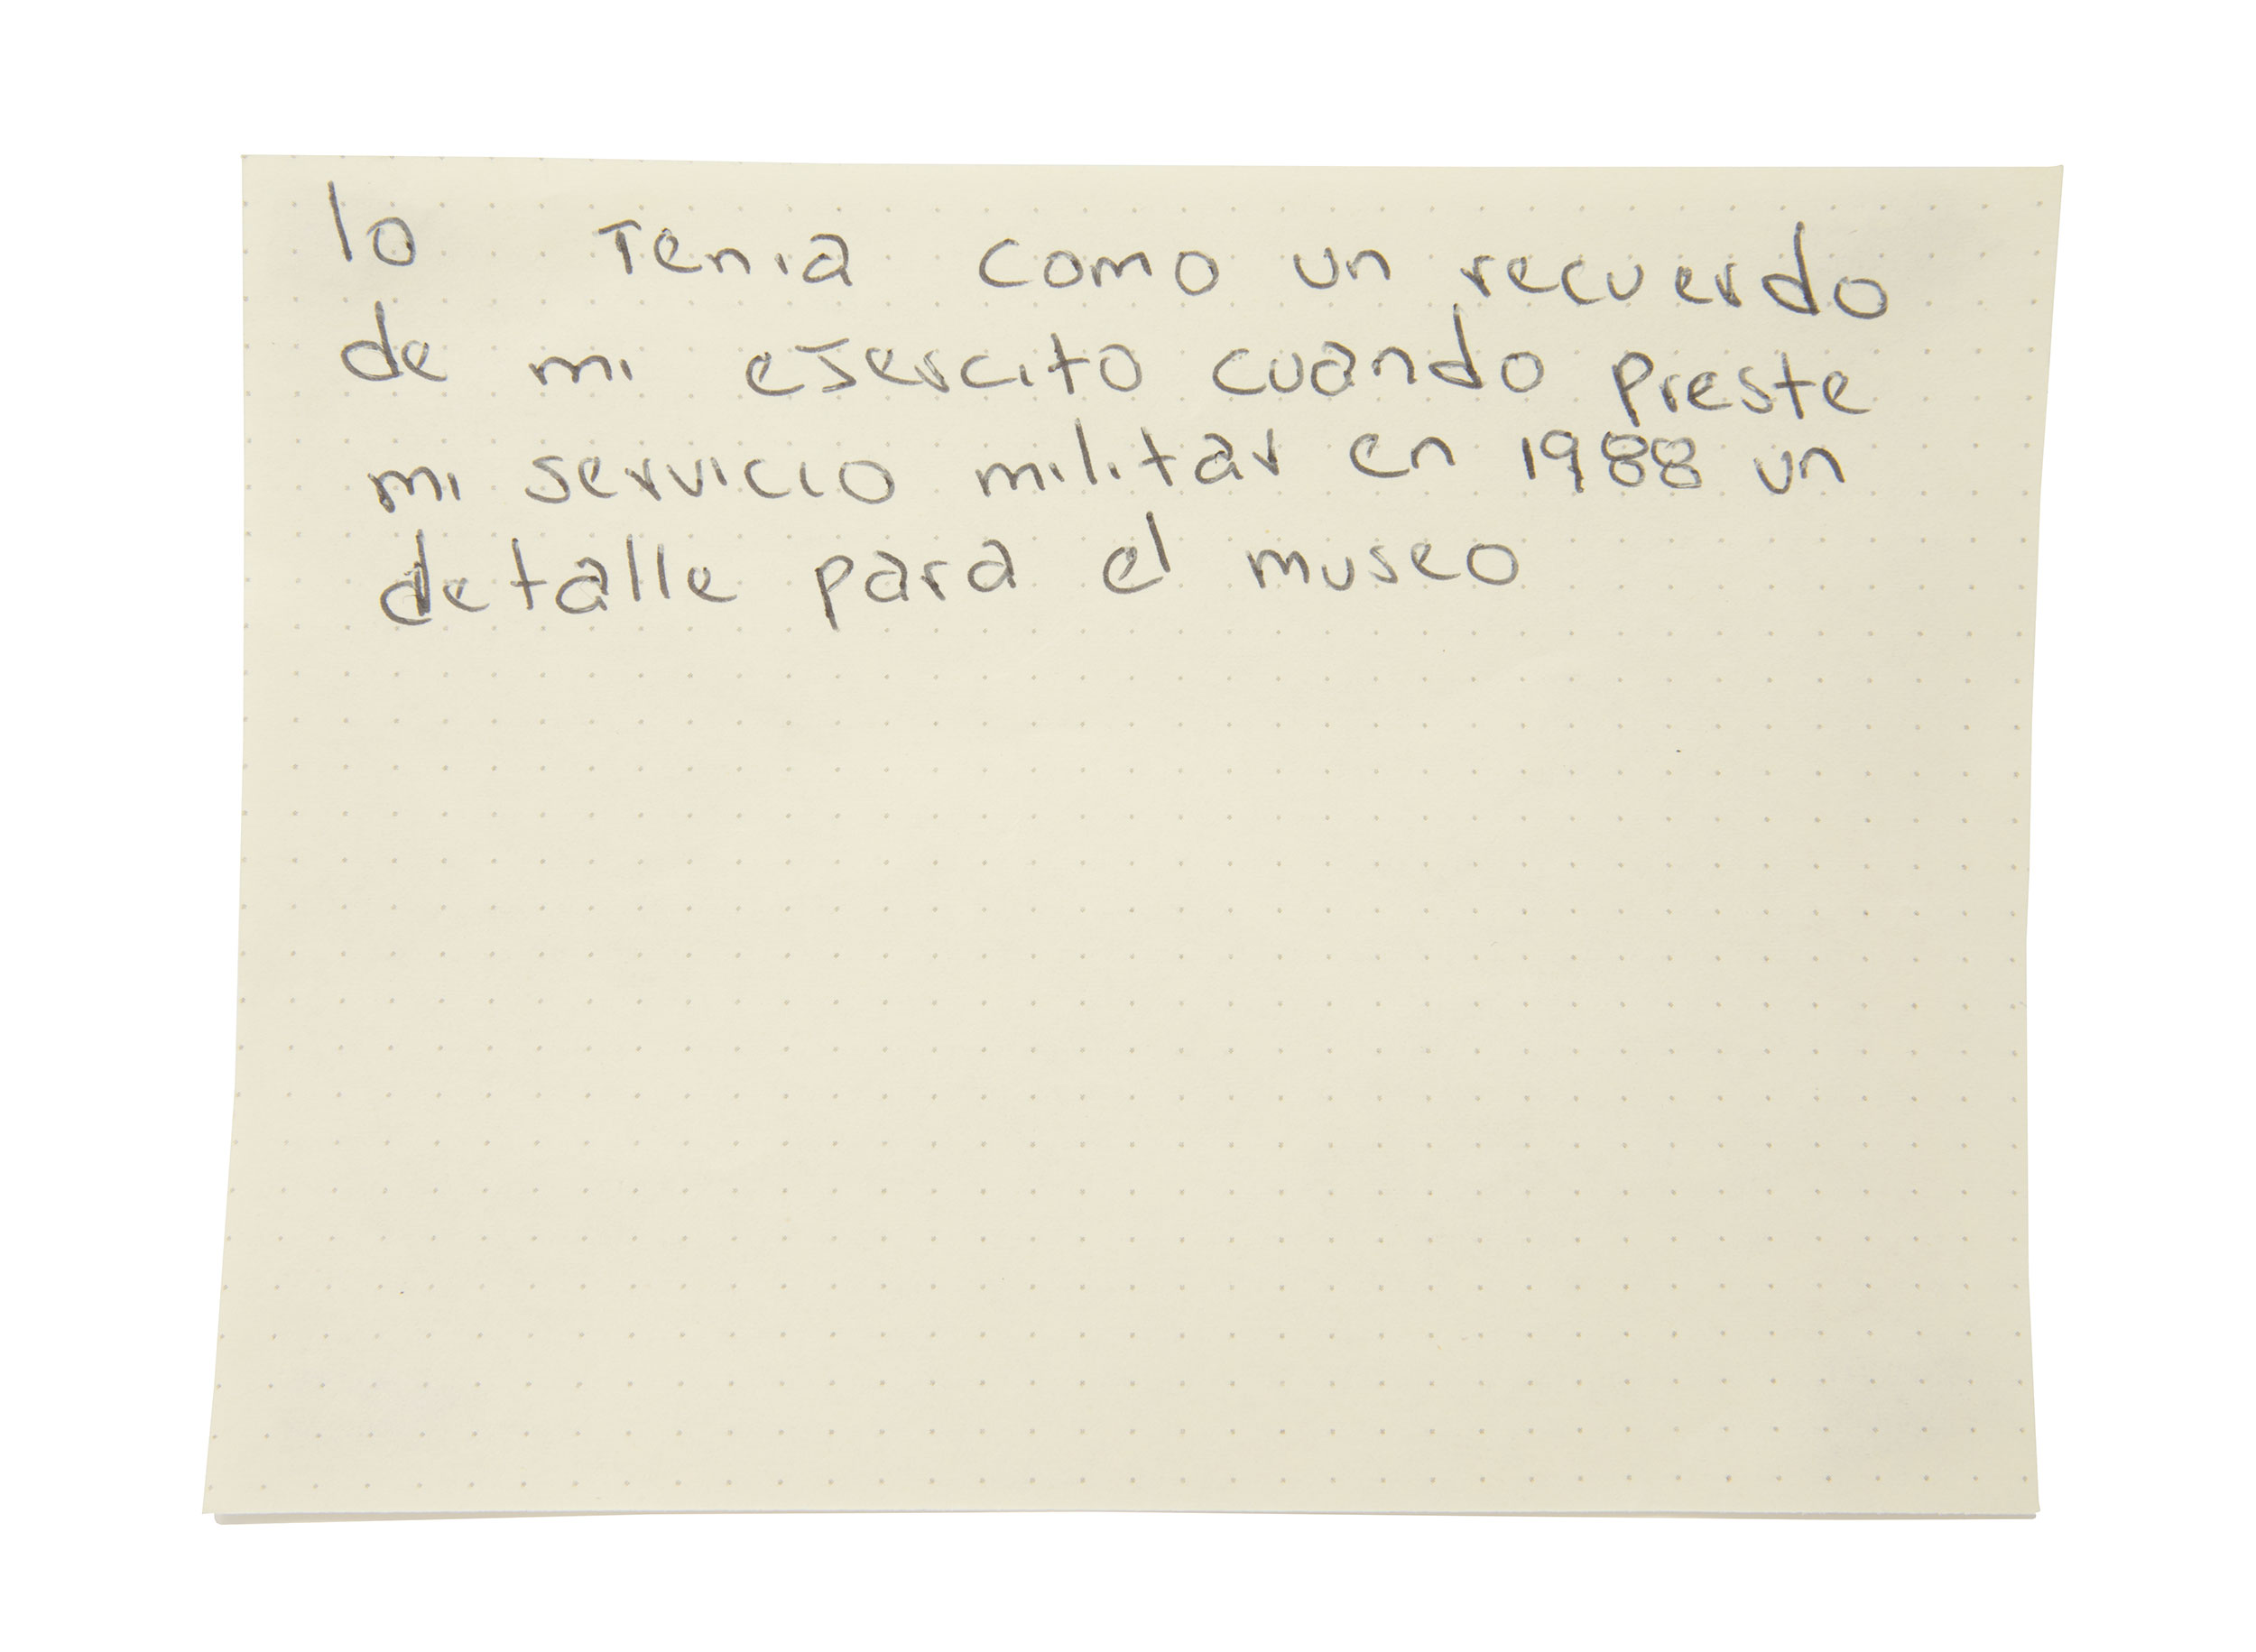 lo Tenia como un recuerdo
de mi eJercito cuando preste
mi servicio militar en 1988 un
detalle para el museo